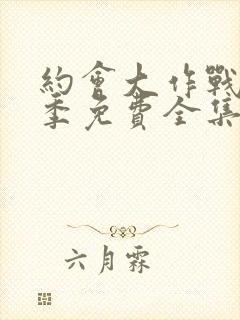 約會大作戰
季免費全集
六月霖